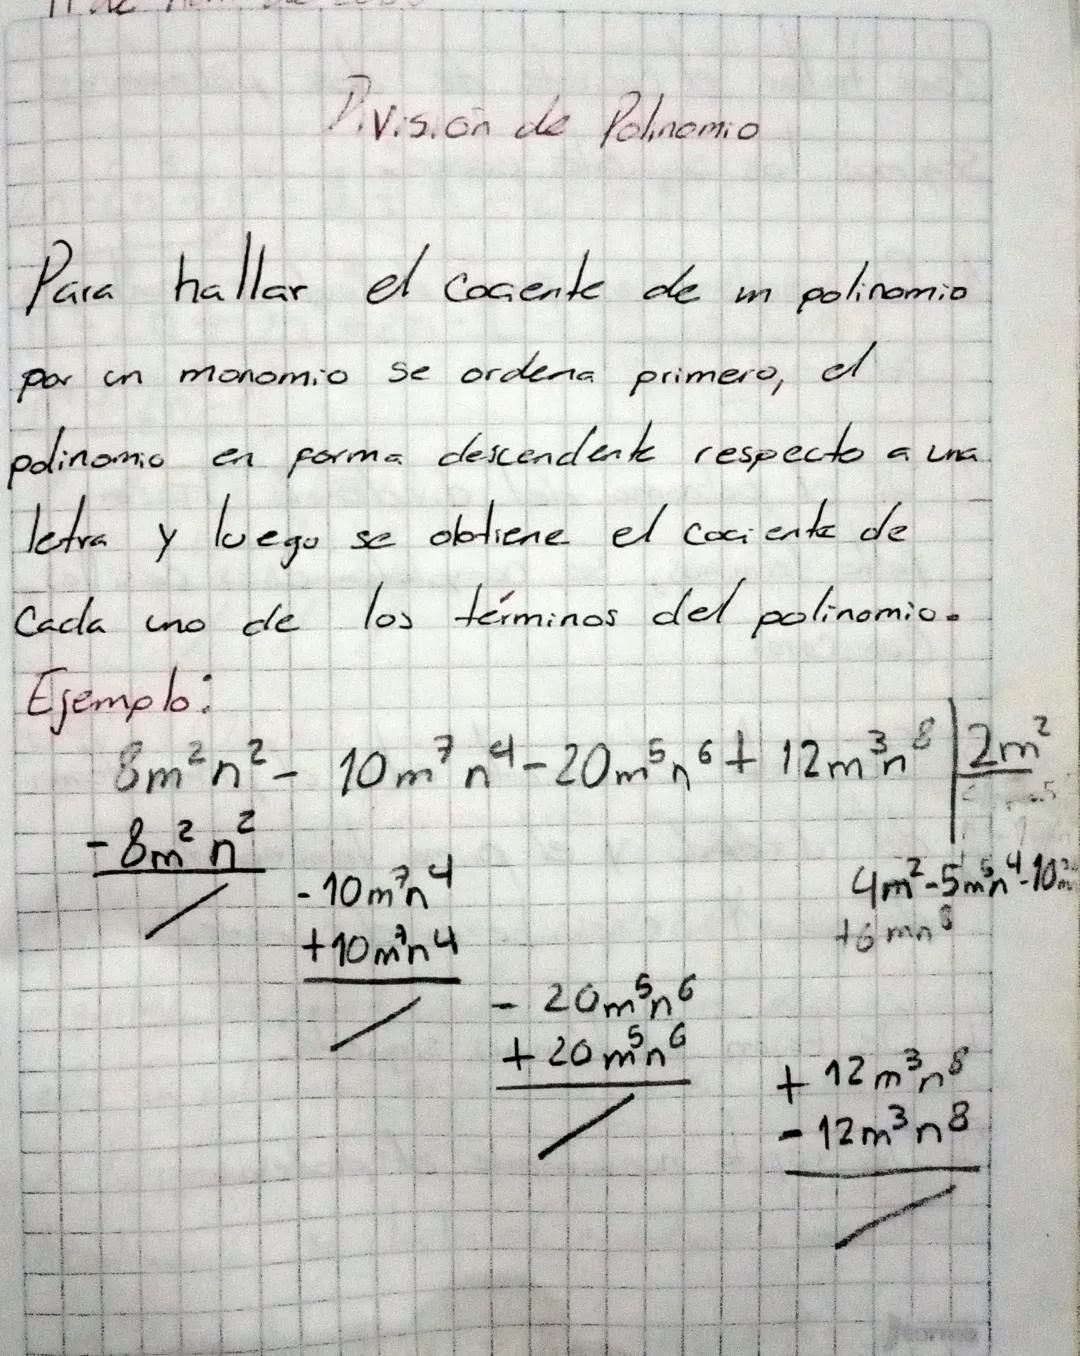 11 de
División de Polinomio
Para hallar el cociente de un polinomio
por un monomio se ordena primero, el
polinomio en forma descendente respecto a una
letra y luego se obtiene el cociente de
Cada uno de los términos del polinomio.
Ejemplo:
8m²n² - 10m⁷n⁴ - 20m⁵n⁶ + 12m³n⁸ | 2m²
- 8m²n²
- 10m⁷n⁴
4m² - 5m⁵n⁴ - 10
+ 10m⁷n⁴
+6mn⁸
- 20m⁵n⁶
+ 20m⁵n⁶
+ 12m³n⁸
- 12m³n⁸
Norma